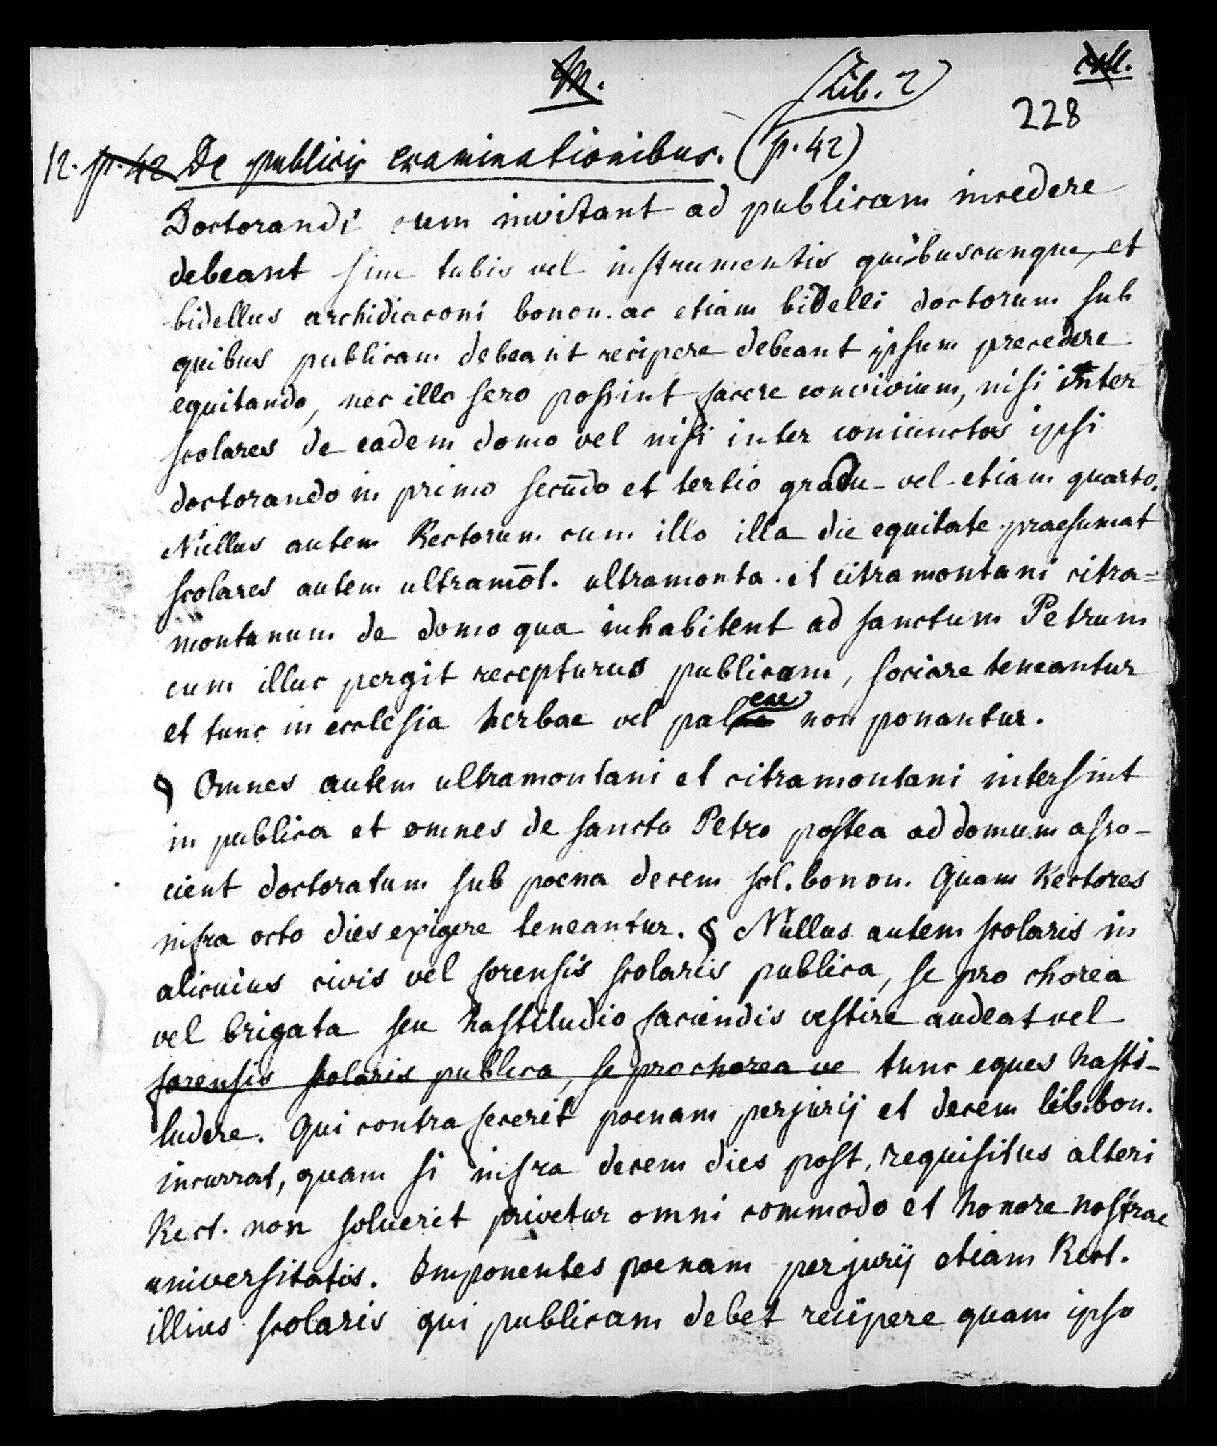 Lib. 2
228
12. p. 42 De publicis examinationibus. (p. 42)
Doctorandi cum invitant ad publicam incedere
debeant sine tubis vel instrumentis quibuscunque, et
bidellus archidiaconi bonon. ac etiam bidelli doctorum sub
quibus publicam debeant recipere debeant ipsum precedere
equitando, nec illo sero possint facere convivium, nisi inter
scolares de eadem domo vel nisi inter coniunctos ipsi
doctorando in primo secūdo et tertio gradu vel etiam quarto.
Nullus autem Rectorum cum illo illa die equitate praesumat
scolares autem ultramōt. ultramonta. et citramontani citra=
montanum de domo qua inhabitent ad sanctum Petrum
cum illuc pergit recepturus publicam, sociare teneantur
et tunc in ecclesia herbae vel paleae non ponantur.
Omnes autem ultramontani et citramontani intersint
in publica et omnes de sancto Petro postea ad domum asso-
cient doctoratum sub poena decem sol. bonon. Quam Rectores
infra octo dies exigere teneantur. § Nullus autem scolaris in
alicuius civis vel forensis scolaris publica, se pro chorea
vel brigata seu hastiludio faciendis vestire audeat vel
forensis scolaris publica, se pro chorea ve tunc eques hasti-
ludere. Qui contra fecerit poenam perjurij et decem lib. bon.
incurrat, quam si infra decem dies post, requisitus alteri
Rect. non solverit privetur omni commodo et honore nostrae
universitatis. Imponentes poenam perjurij etiam Rect.
illius scolaris qui publicam debet recipere quam ipso